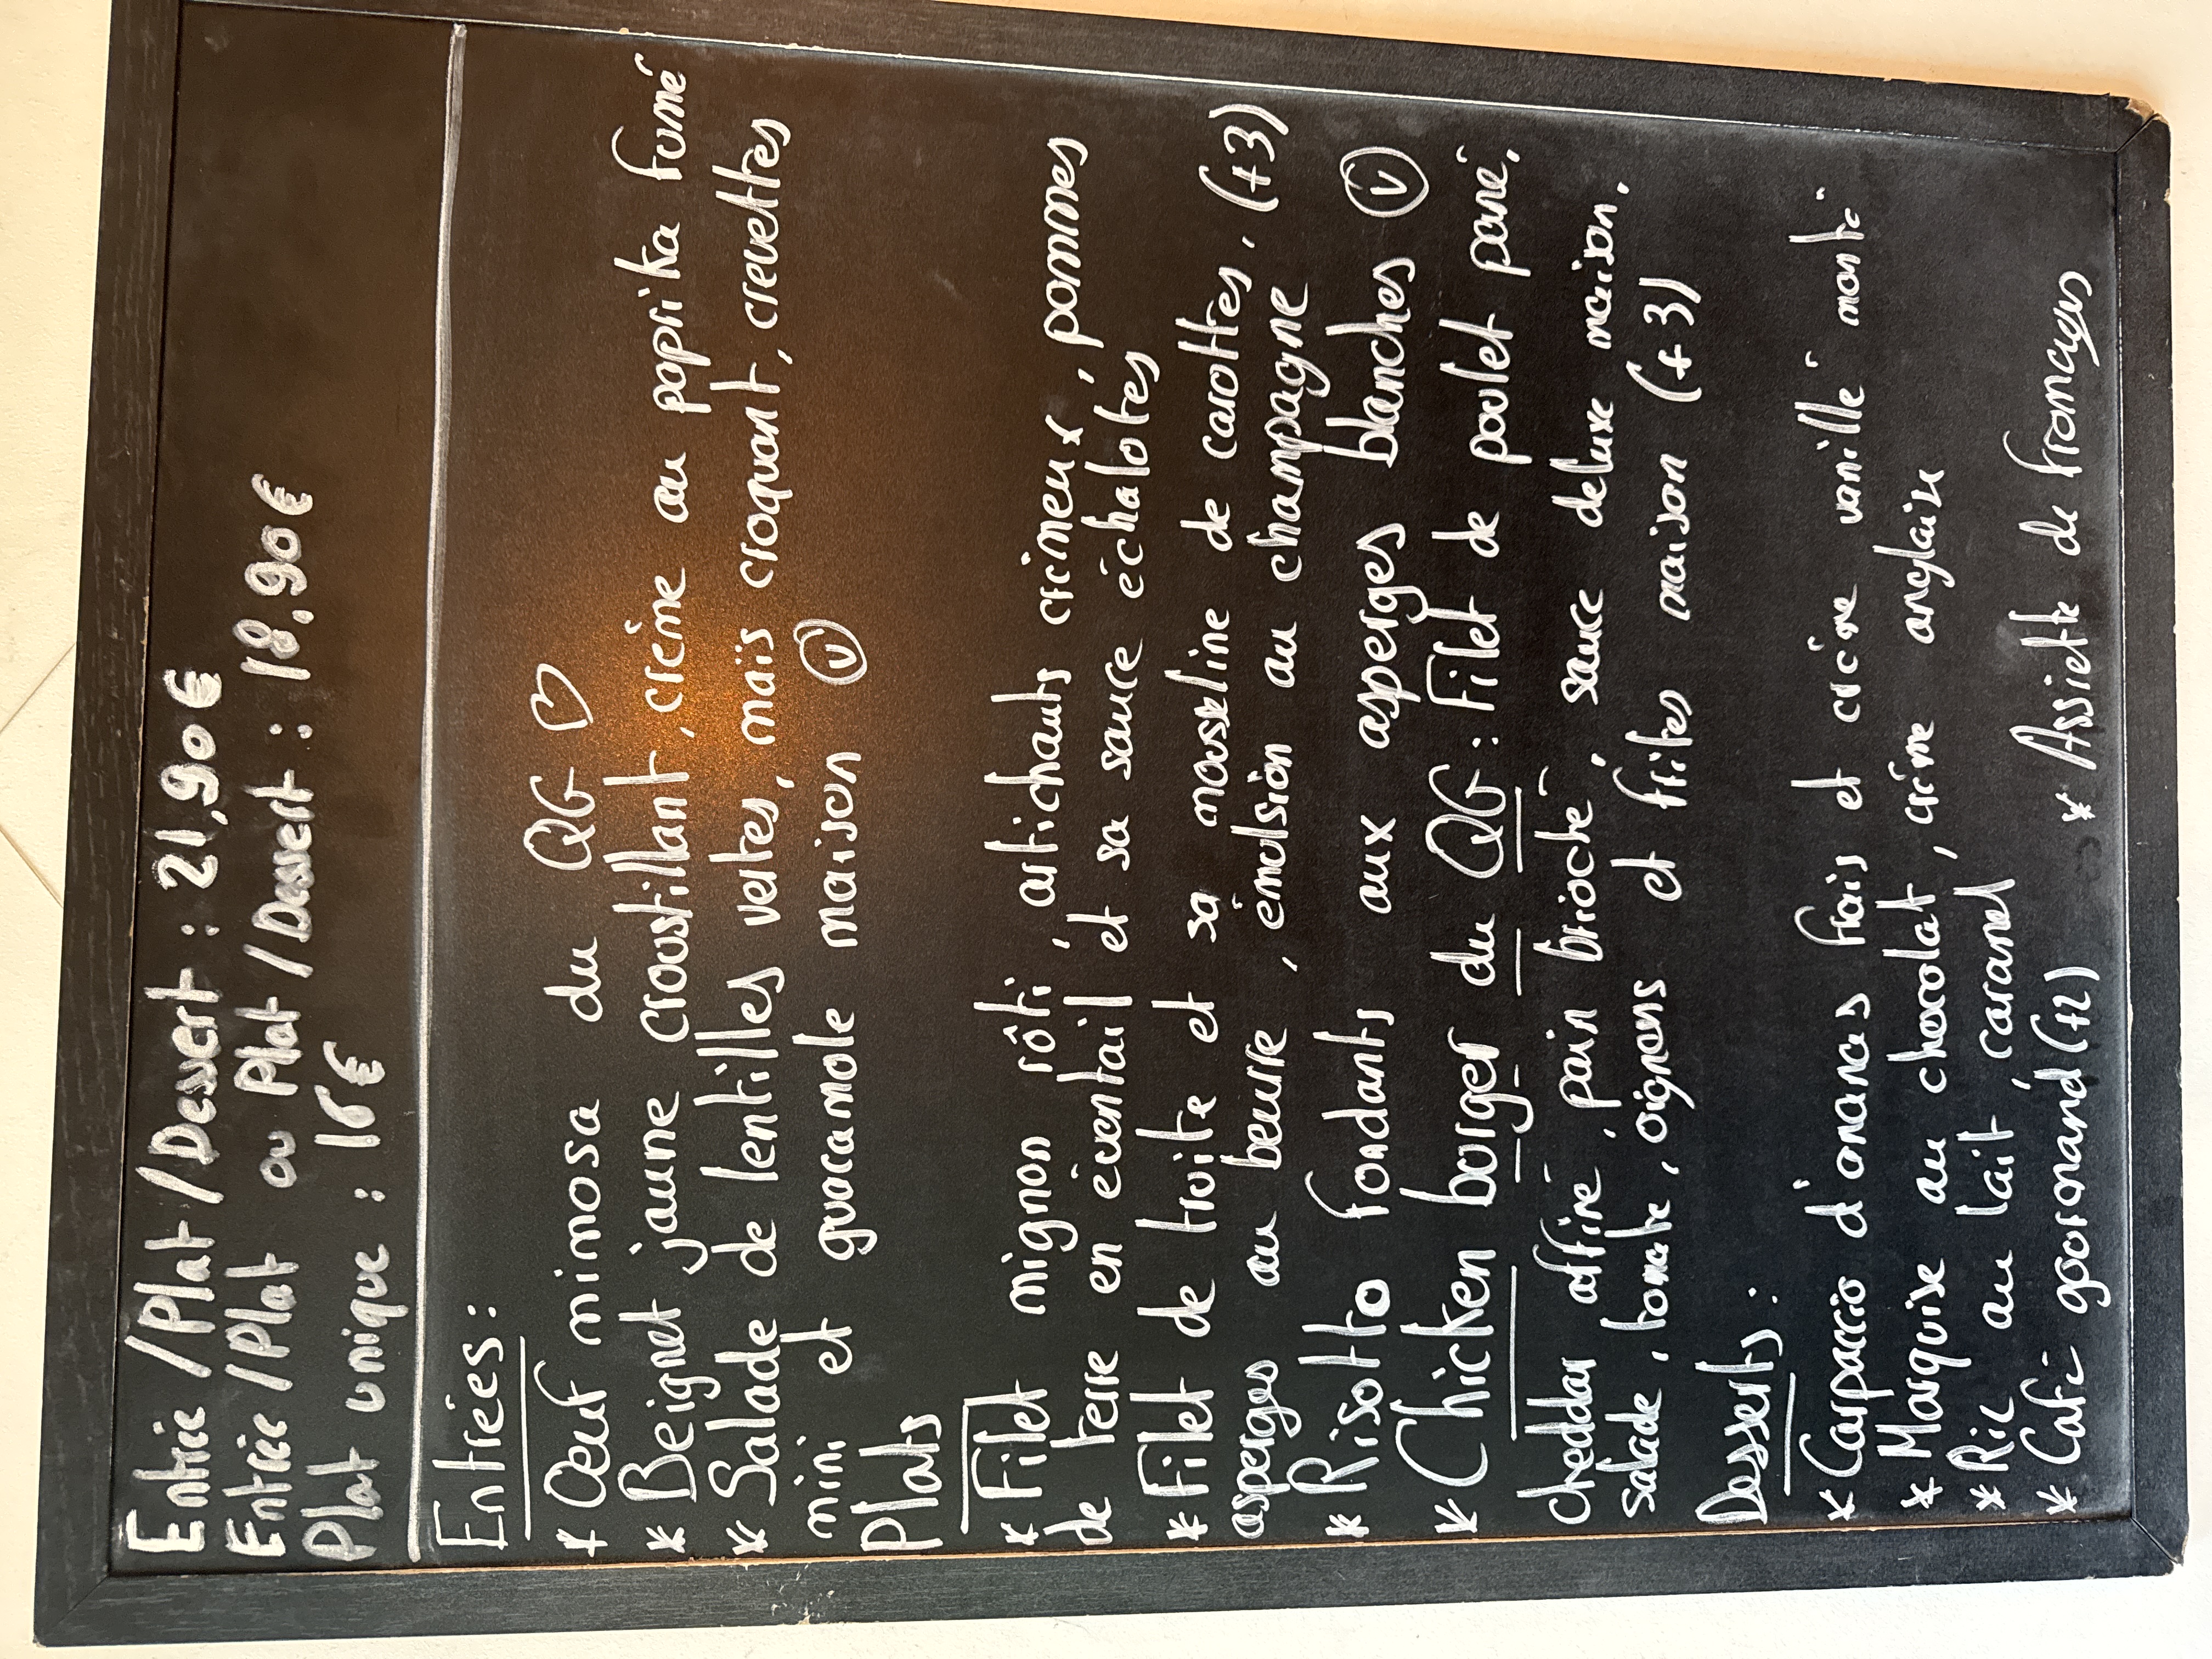 Entrée /Plat /Dessert : 21,90€
Entrée /Plat ou Plat /Dessert : 18,90€
Plat unique : 16€
Entrées :
* Œuf mimosa du QG ♡
* Beignet jaune croustillant, crème au paprika fumé
* Salade de lentilles vertes, maïs croquant, crevettes
mini et guacamole maison Ⓥ
Plats
* Filet mignon rôti, artichauts crémeux, pommes
de terre en éventail et sa sauce échalotes
* Filet de truite et sa mousseline de carottes, (+3)
asperges au beurre, émulsion au champagne
* Risotto fondants aux asperges blanches Ⓥ
* Chicken burger du QG : Filet de poulet pané,
cheddar affiné, pain brioché, sauce deluxe maison,
salade, tomate, oignons et frites maison (+3)
Desserts :
* Carpaccio d'ananas frais et crème vanille montée
* Marquise au chocolat, crème anglaise
* Riz au lait, caramel
* Café gourmand (+2) * Assiette de fromages